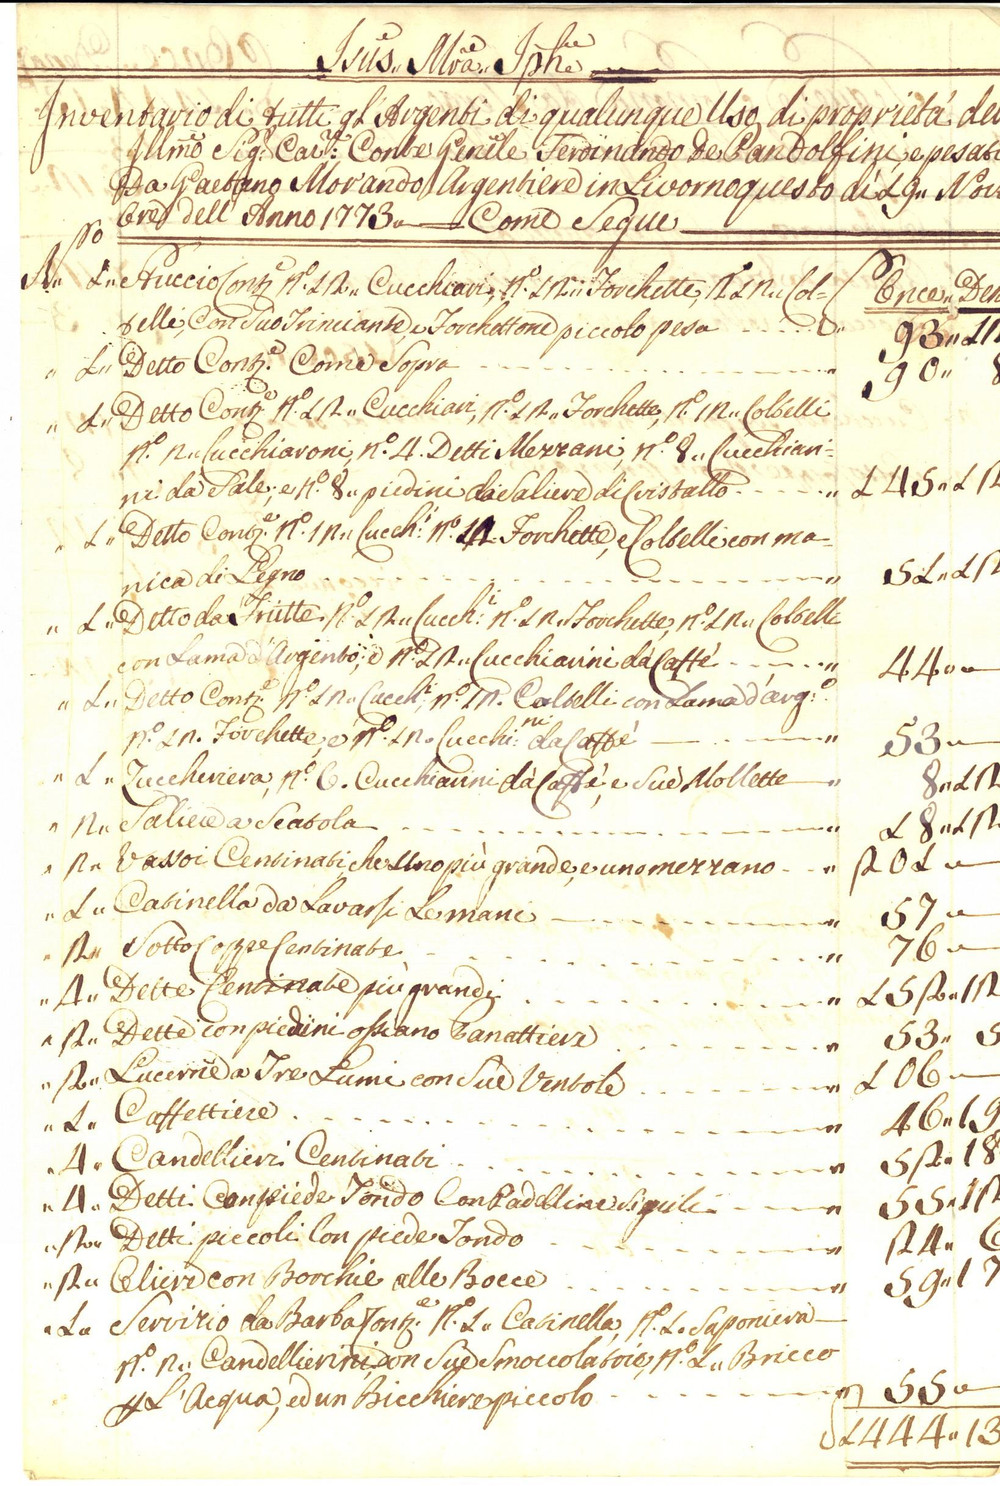 Jsus. Mra. Jphe
Inventario di tutti gl'Argenti di qualunque Uso di proprietá del
Jllmo Sigr. Cavr. Conte Genile Ferdinando De Pandolfini, e pesati
Da Gaetano Morando Argentiere in Livorno questo di 19. Nov
bre dell'Anno 1773. Come Segue
N. 1. Astuccio Contze. No. 12. Cucchiari, No. 12. Forchette, No. 12. Col-
telli, Con Suo Trinciante, e Forchettone piccolo pesa
Once. Den
93. 12
1. Detto Contze. Come Sopra 90. 8
1. Detto Contze. No. 12. Cucchiari, No. 12. Forchette, No. 12. Coltelli
No. 2. Cucchiaroni, No. 4. Detti Mezzani, No. 8. Cucchiari-
ni da Sale, e No. 8. piedini da Saliere di Cristallo 145. 12
1. Detto Contze. No. 12. Cucchi. No. 12. Forchette, e Coltelli con ma-
nica di Legno 51. 12
1. Detto da Frutte No. 12. Cucchi. No. 12. Forchette, No. 12. Coltelli
con Lama d'Argento, e No. 12. Cucchiarini da Caffé 44.
1. Detto Contze. No. 12. Cucchi, No. 12. Coltelli con Lama d'argo.
No. 12. Forchette, e No. 12. Cucchini da Caffé 53.
1. Zuccheriera, No. 6. Cucchiarini da Caffé, e Sué Mollette 8. 12
2. Saliere a Scatola 18. 12
2. Vassoi Centinati, che Uno più grande, e uno mezzano 201.
1. Catinella da Lavarsi Le mani 57.
2. Sotto Coppe Centinate 76.
4. Dette Centinate più grandi 152. 12
2. Dette con piedini ossiano Panattiere 53. 5
2. Lucerne a Tre Lumi con Sue Ventole 106.
1. Caffettiere 46. 19
4. Candellieri Centinati 52. 18
4. Detti Con piede Tondo Con Padelline Simili 55. 12
2. Detti piccoli Con piede Tondo 24. 6
2. Oliere con Borchie alle Bocce 59. 17
1. Servizio da Barba Contze. No. 1. Catinella, No. 1. Saponiera
No. 2. Candellierini, con Sue Smoccolatoie, No. 1. Bricco
L'Acqua, ed un Bicchiere piccolo 55.
1444. 13